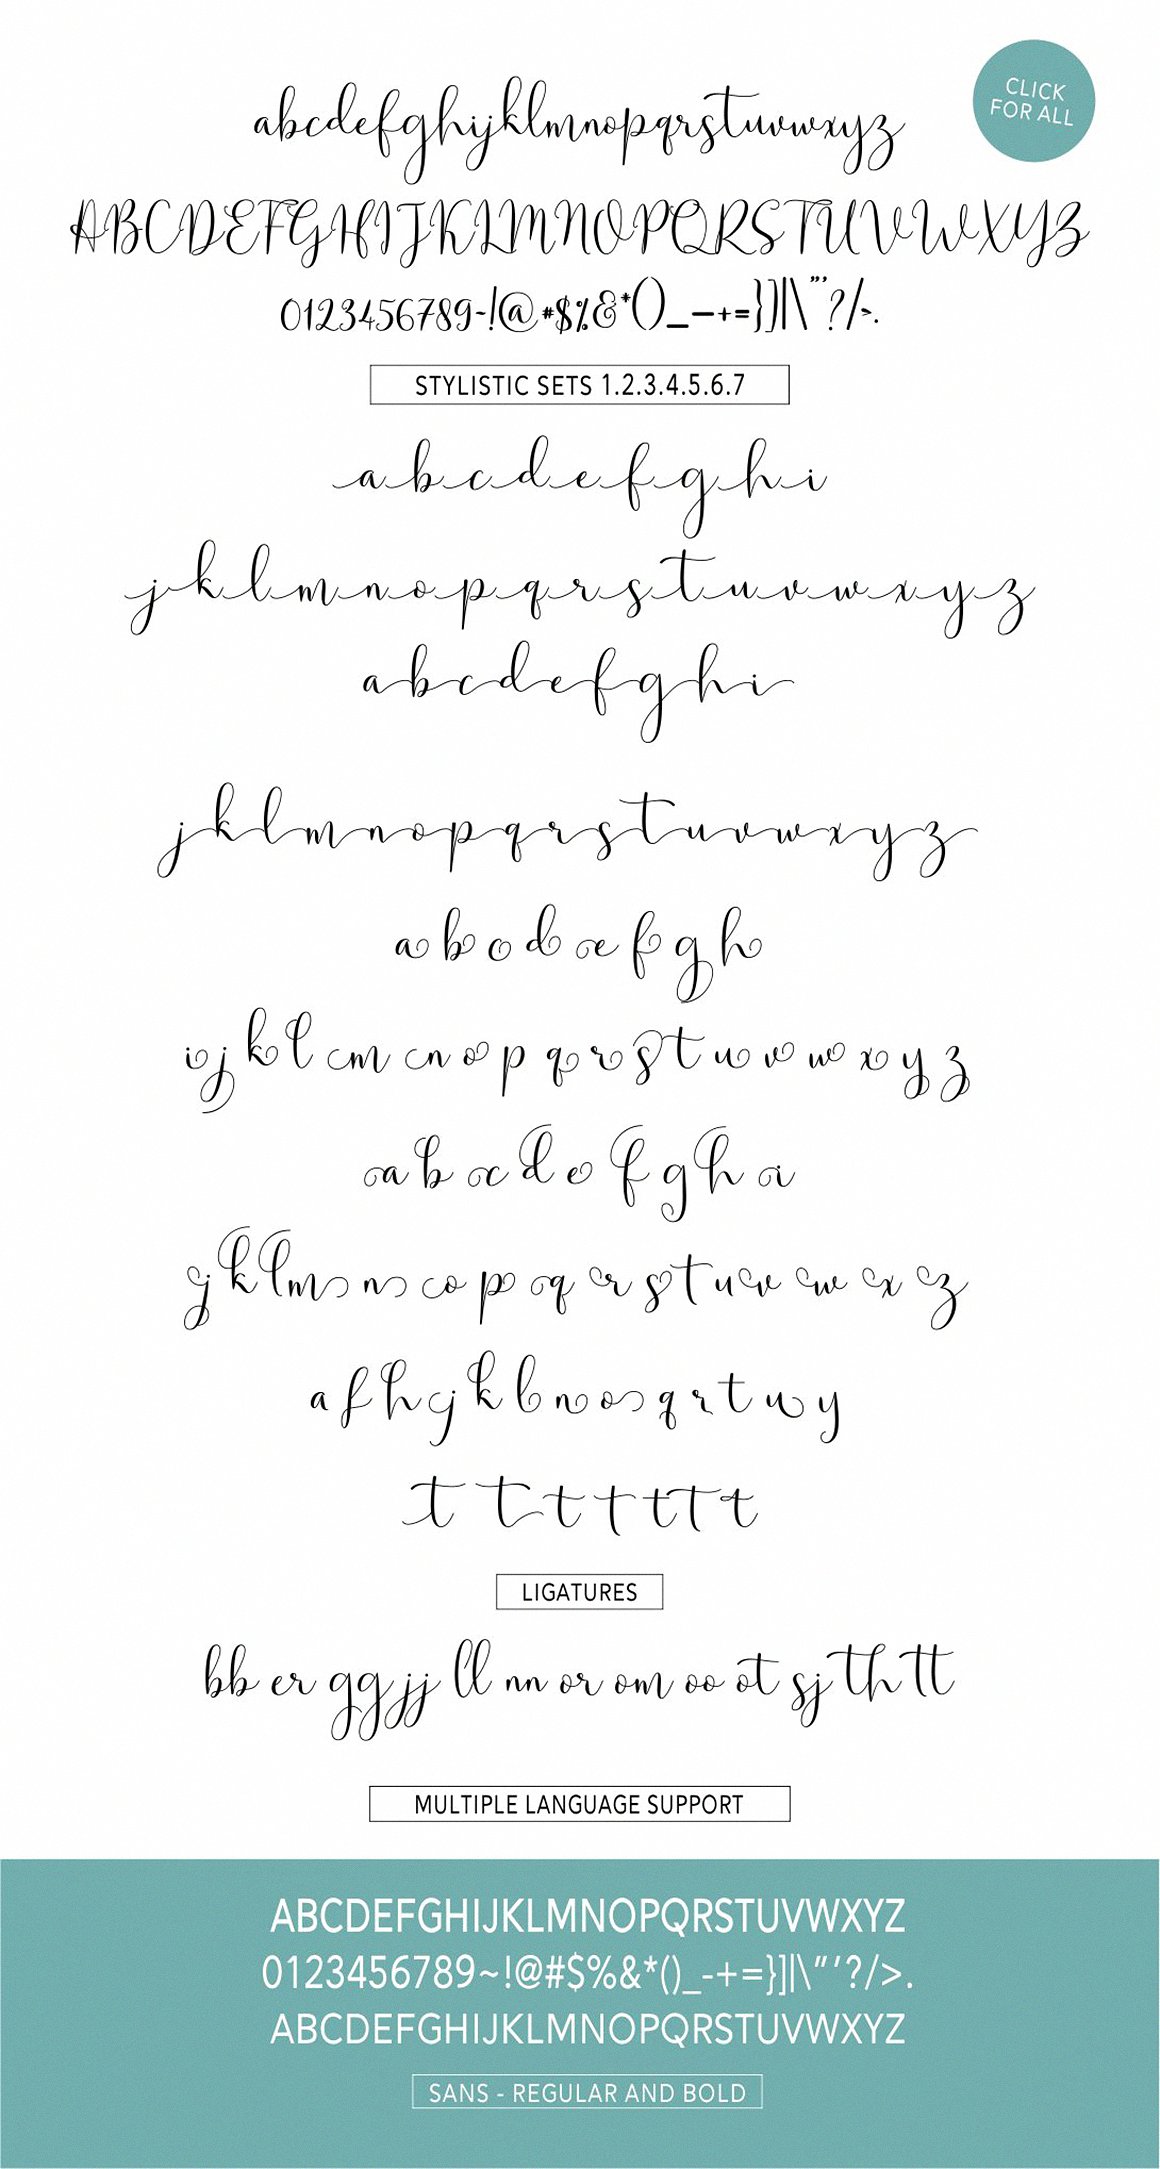 CLICK
FOR ALL
abcdefghijklmnopqrstuvwxyz
ABCDEFGHIJKLMNOPQRSTUVWXYZ
0123456789~!@#$%&*()_—-+=}]|\"'?/>.
STYLISTIC SETS 1.2.3.4.5.6.7
a b c d e f g h i
j k l m n o p q r s t u v w x y z
a b c d e f g h i
j k l m n o p q r s t u v w x y z
a b c d e f g h
i j k l m n o p q r s t u v w x y z
a b c d e f g h i
j k l m n o p q r s t u v w x z
a f h j k l n o q r t u y
t t t t t t t
LIGATURES
bb er gg jj ll nn or om oo ot sj th tt
MULTIPLE LANGUAGE SUPPORT
ABCDEFGHIJKLMNOPQRSTUVWXYZ
0123456789~!@#$%&*()_-+=}]|\"'?/>.
ABCDEFGHIJKLMNOPQRSTUVWXYZ
SANS - REGULAR AND BOLD